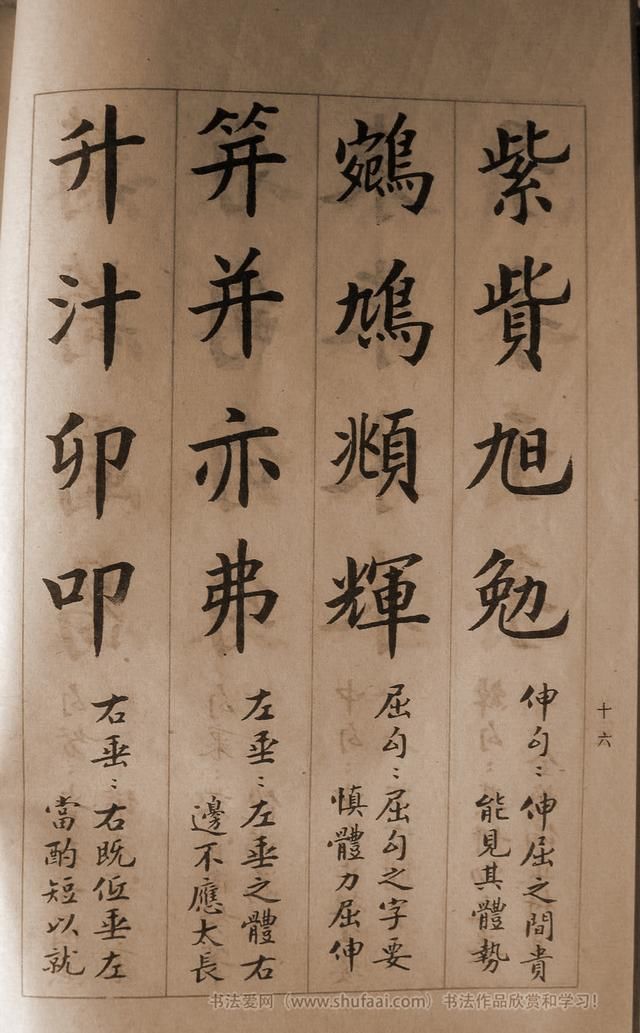 十六
紫貲旭勉
伸勾：伸屈之間貴
能見其體勢
鵷鳩頫輝
屈勾：屈勾之字要
慎體力屈伸
笄并亦弗
左垂：左垂之體右
邊不應太長
升汁卯叩
右垂：右既低垂左
當酌短以就
书法爱网（www.shufaai.com）书法作品欣赏和学习！